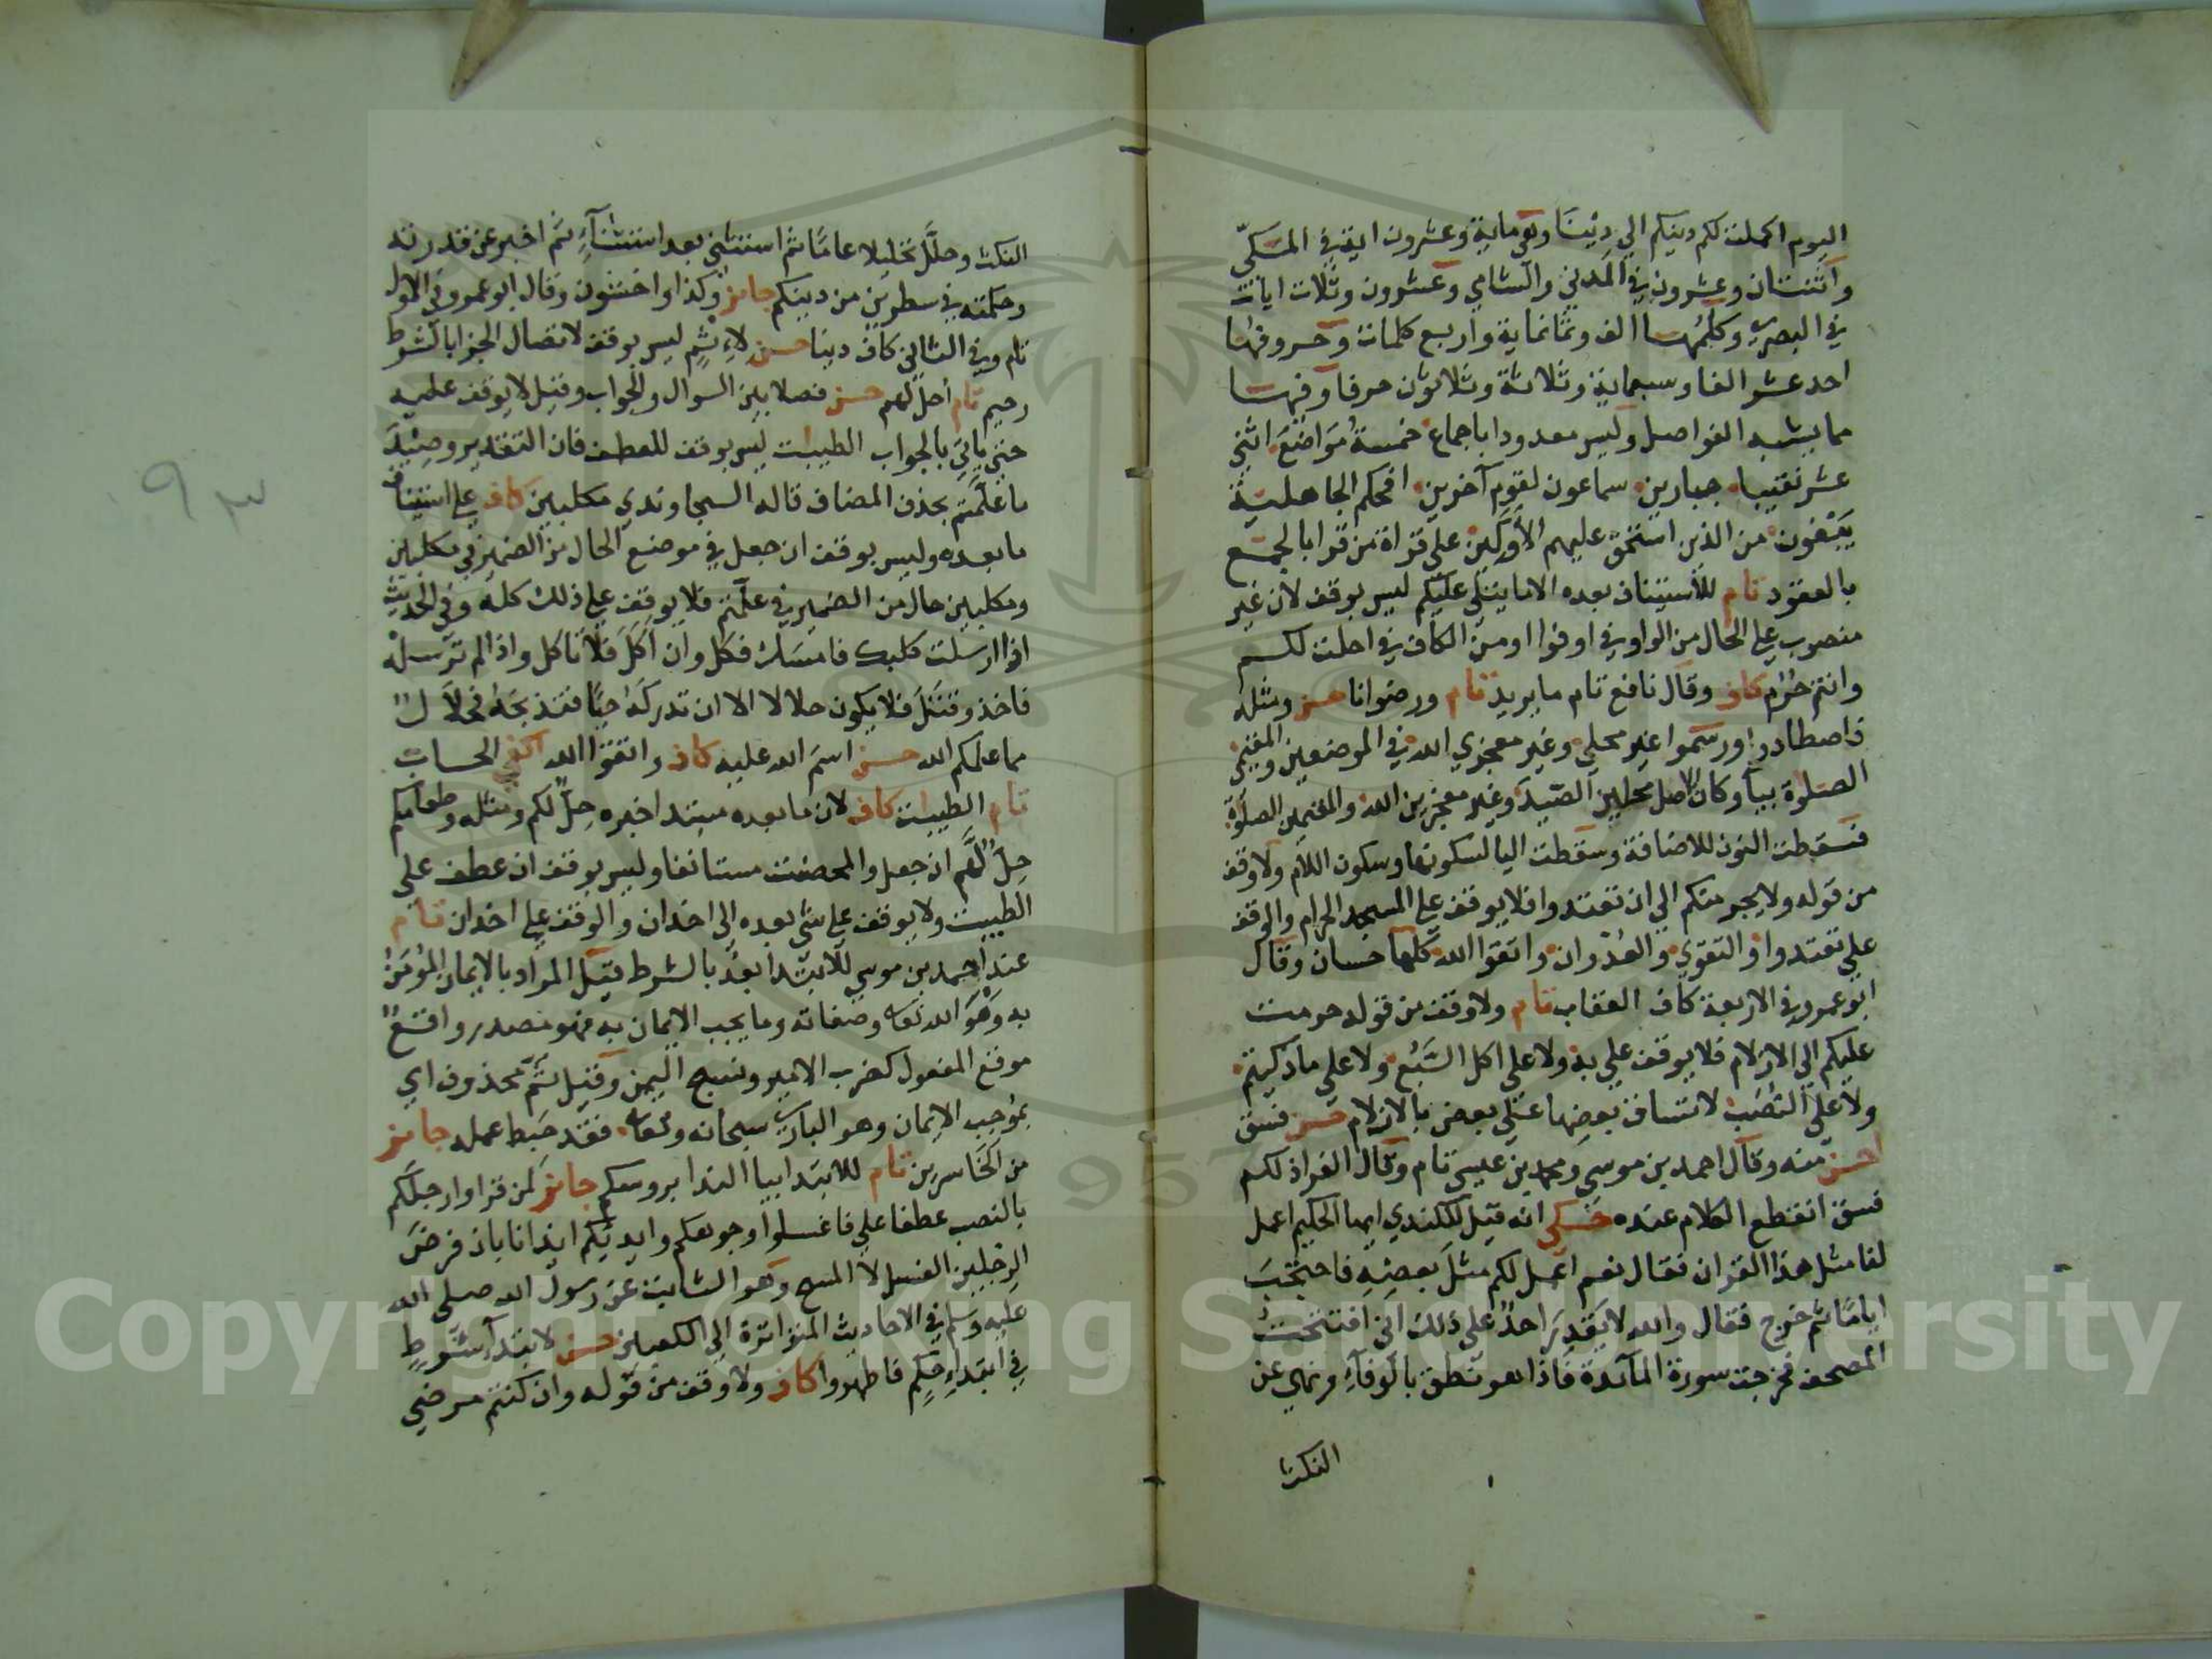 اليوم اكملت لكم دينكم الي دينا وهي ماية وعشرون اية في المكي
واثنتان وعشرون في المدني والشامي وعشرون وثلاث ايات
في البصري وكلمها الف وثمانماية واربع كلمات وحروفها
احد عشر الفا وسبعماية وثلاثة وثلاثون حرفا وفيها
مما يشبه الفواصل وليس معدودا باجماع خمسة مواضع اثني
عشر نقيبا جبارين سماعون لقوم آخرين افحكم الجاهلية
يبغون من الذين استحق عليهم الأولين على قراة من قرا بالجمع
بالعقود تام للاستيناف بعده الا ما يتلى عليكم ليس بوقف لان غير
منصوب علي الحال من الواو في اوفوا او من الكاف في احلت لكم
وانتم حرم كاف وقال نافع تام ما يريد تام ورضوانا حسن ومثله
فاصطادوا ورسموا غير محلي وغير معجزي الله في الموضعين والمقيمي
الصلوة بيا وكان الاصل محلين الصيد وغير معجزين الله والمقيمين الصلوة
فسقطت النون للاضافة وسقطت اليا لسكونها وسكون اللام ولا وقف
من قوله ولا يجرمنكم الي ان تعتدوا فلا يوقف علي المسجد الحرام والوقف
على تعتدوا والتقوي والعدوان واتقوا الله كلها حسان وقال
ابو عمرو في الاربعة كاف العقاب تام ولا وقف من قوله حرمت
عليكم الى الازلام فلا يوقف علي به ولا على اكل السبع ولا على ما ذكيتم
ولا على النصب لاتساق بعضها على بعض بالازلام حسن فسق
احسن منه وقال احمد بن موسي ومحمد بن عيسى تام وقال الفرا ذلكم
فسق انقطع الكلام عنده حكي انه قيل للكندي ايها الحكيم اعمل
لنا مثل هذا القران فقال نعم اعمل لكم مثل بعضه فاحتجب
اياما ثم خرج فقال والله لا يقدر احد على ذلك اني افتتحت
المصحف فخرجت سورة المآئدة فاذا هو نطق بالوفآء ونهي عن
النكث
النكث وحلل تحليلا عاما ثم استثنى بعد استثنآء ثم اخبر عن قدرته
وحكمته في سطرين من دينكم جائز وكذا واخشون وقال ابو عمرو في الاول
تام وفي الثاني كاف دينا حسن لاثم ليس بوقف لاتصال الجزا بالشرط
رحيم تام أحل لهم حسن فصلا بين السوال والجواب وقيل لا يوقف عليه
حتى ياتي بالجواب الطيبات ليس بوقف للعطف فان التقدير وصيد
ما علمتم بحذف المضاف قاله السجاوندي مكلبين كاف علي استيناف
ما بعده وليس بوقف ان جعل في موضع الحال من الضمير في مكلبين
ومكلبين حال من الضمير في علمتم فلا يوقف علي ذلك كله وفي الحديث
اذا ارسلت كلبك فامسك فكل وان اكل فلا تاكل واذا لم ترسله
فاخذ وقتل فلا يكون حلالا الا ان تدركه حيا فتذبحه فحلال
مما علمكم الله حسن اسم الله عليه كاف واتقوا الله اكفى الحساب
تام الطيبات كاف لان ما بعده مبتدا خبره حل لكم ومثله وطعامكم
حل لهم ان جعل والمحصنت مستانفا وليس بوقف ان عطف على
الطيبت ولا يوقف علي شي بعده الى اخدان والوقف علي اخدان تام
عند احمد بن موسي للابتدا بعد بالشرط قيل المراد بالايمان المؤمن
به وهو الله تعالى وصفاته وما يجب الايمان به فهو مصدر واقع
موقع المفعول كضرب الامير ونسج اليمن وقيل ثم محذوف اي
بموجب الايمان وهو الباري سبحانه وتعالى فقد حبط عمله جائز
من الخاسرين تام للابتدا بيا الندا بروسكم جائز لمن قرا وارجلكم
بالنصب عطفا على فاغسلوا وجوهكم وايديكم ايذانا بان فرض
الرجلين الغسل لا المسح وهو الثابت عن رسول الله صلى الله
عليه وسلم في الاحاديث المتواترة الى الكعبين حسن لابتدآ شرط
في ابتداء حكم فاطهروا كاف ولا وقف من قوله وان كنتم مرضي
٩٣
1957
Copyright © King Saud University